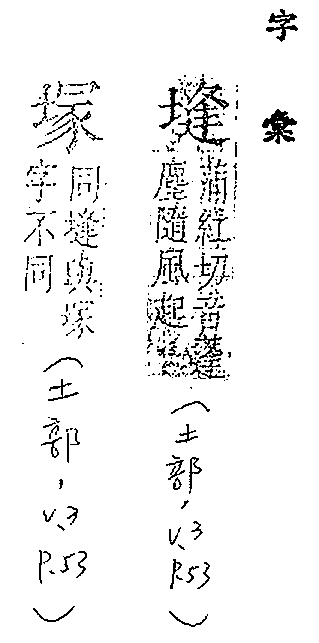 字彙
塳
蒲紅切音蓬
塵隨風起
(土部, V.3 P.53)
塜
同塳與塚
字不同
(土部, V.3 P.53)